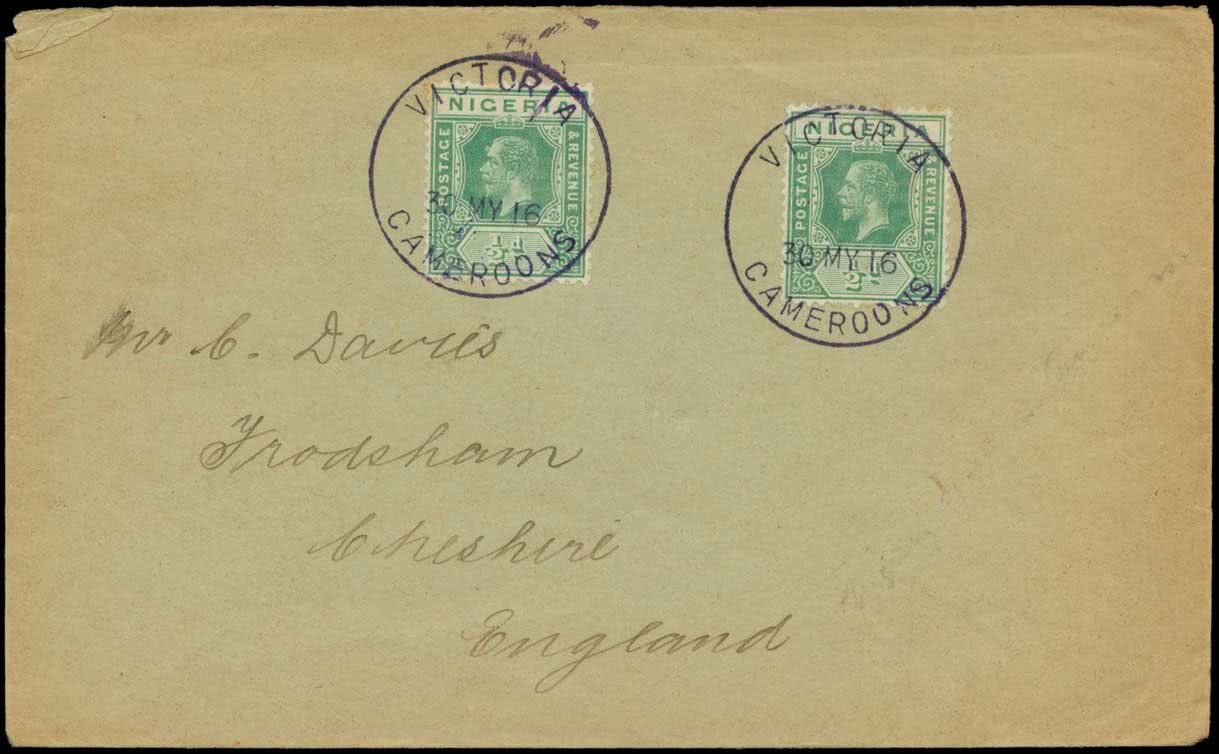 VICTORIA
30 MY 16
CAMEROONS
NIGERIA
POSTAGE
& REVENUE
½d
VICTORIA
30 MY 16
CAMEROONS
NIGERIA
POSTAGE
& REVENUE
½d
Mr C. Davies
Frodsham
Cheshire
England